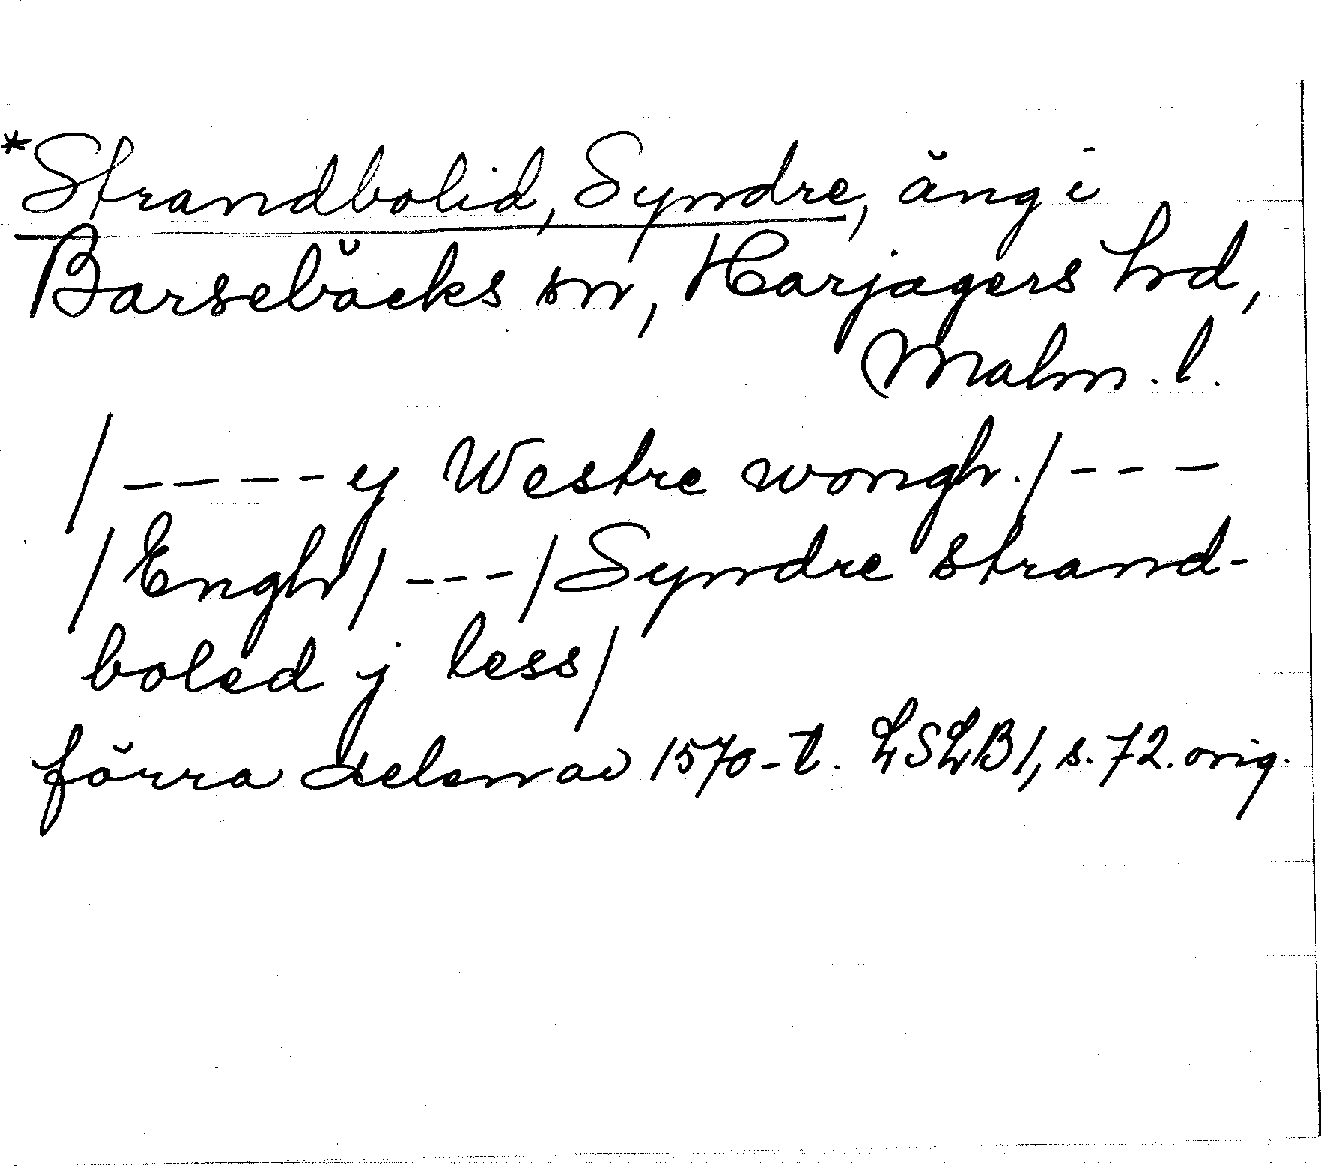 *Strandbolid, Syndre, äng i
Barsebäcks sn, Harjagers hd,
Malm. l.
/-----y Westre wongh./---
/Engh/---/Syndre strand-
boled j less/
förra delen av 1570-t. LSLB1, s. 72. orig.